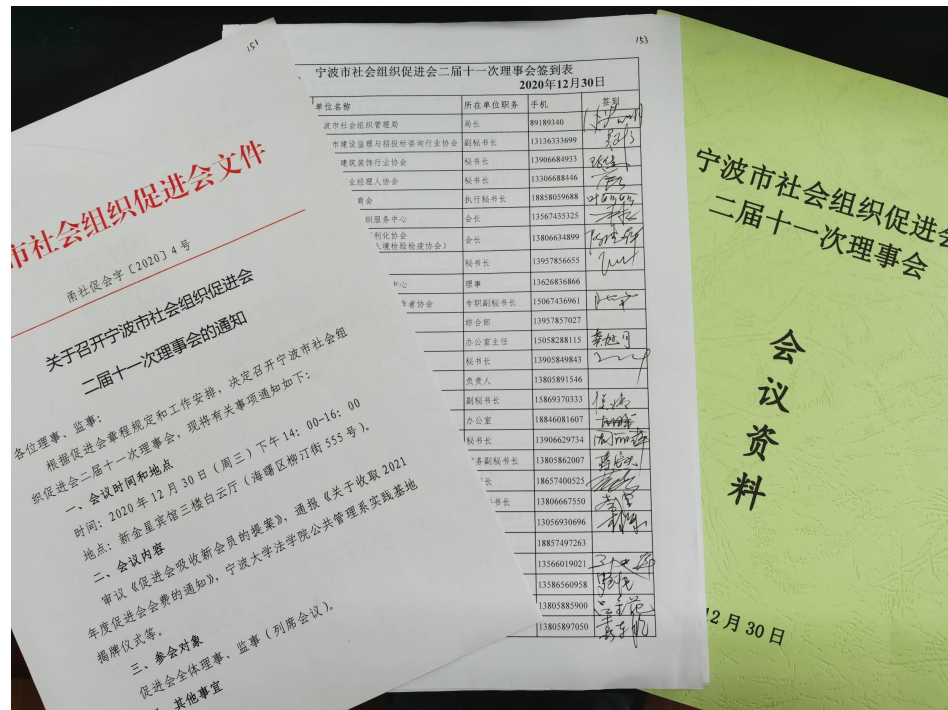 151
市社会组织促进会文件
甬社促会字〔2020〕4号
关于召开宁波市社会组织促进会
二届十一次理事会的通知
各位理事、监事：
根据促进会章程规定和工作安排，决定召开宁波市社会组
织促进会二届十一次理事会，现将有关事项通知如下：
一、会议时间和地点
时间：2020年12月30日（周三）下午14：00-16：00
地点：新金星宾馆三楼白云厅（海曙区柳汀街555号）。
二、会议内容
审议《促进会吸收新会员的提案》，通报《关于收取2021
年度促进会会费的通知》，宁波大学法学院公共管理系实践基地
揭牌仪式等。
三、参会对象
促进会全体理事、监事（列席会议）。
其他事宜
153
宁波市社会组织促进会二届十一次理事会签到表
2020年12月30日
单位名称 所在单位职务 手机 签到
波市社会组织管理局 局长 89189340
市建设监理与招投标咨询行业协会 副秘书长 13136333699
建筑装饰行业协会 秘书长 13906684933
业经理人协会 秘书长 13306688446
商会 执行秘书长 18858059688
织服务中心 会长 13567435325
利化协会
境检验检疫协会） 会长 13806634899
秘书长 13957856655
中心 理事 13626836866
者协会 专职副秘书长 15067436961
综合部 13957857027
办公室主任 15058288115
秘书长 13905849843
负责人 13805891546
副秘书长 15869370333
办公室 18846081607
秘书长 13906629734
务副秘书长 13805862007
长 18657400525
书长 13806667550
13056930696
18857497263
13566019021
13586560958
13805885900
13805897050
宁波市社会组织促进会
二届十一次理事会
会
议
资
料
12月30日